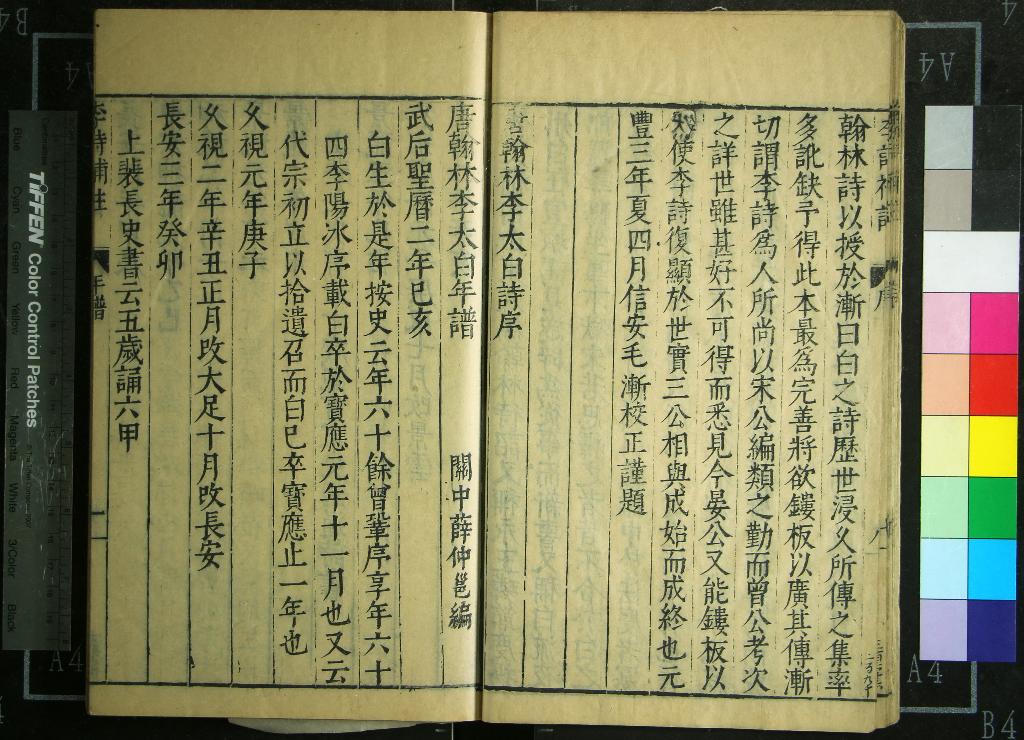 翰林詩以授於漸曰白之詩歷世浸久所傳之集率
多訛缺予得此本最爲完善將欲鏤板以廣其傳漸
切謂李詩爲人所尚以宋公編類之勤而曾公考次
之詳世雖甚好不可得而悉見今晏公又能鏤板以
使李詩復顯於世實三公相與成始而成終也元
豐三年夏四月信安毛漸校正謹題
翰林李太白詩序
唐翰林李太白年譜
關中薛仲邕編
武后聖曆二年己亥
白生於是年按史云年六十餘曾鞏序享年六十
四李陽冰序載白卒於寶應元年十一月也又云
代宗初立以拾遺召而白已卒寶應止一年也
久視元年庚子
久視二年辛丑正月改大足十月改長安
長安三年癸卯
上裴長史書云五歲誦六甲
李詩補註
年譜
一
TIFFEN Color Control Patches
Blue Cyan Green Yellow Red Magenta White 3/Color Black
A4
A4
A4
B4